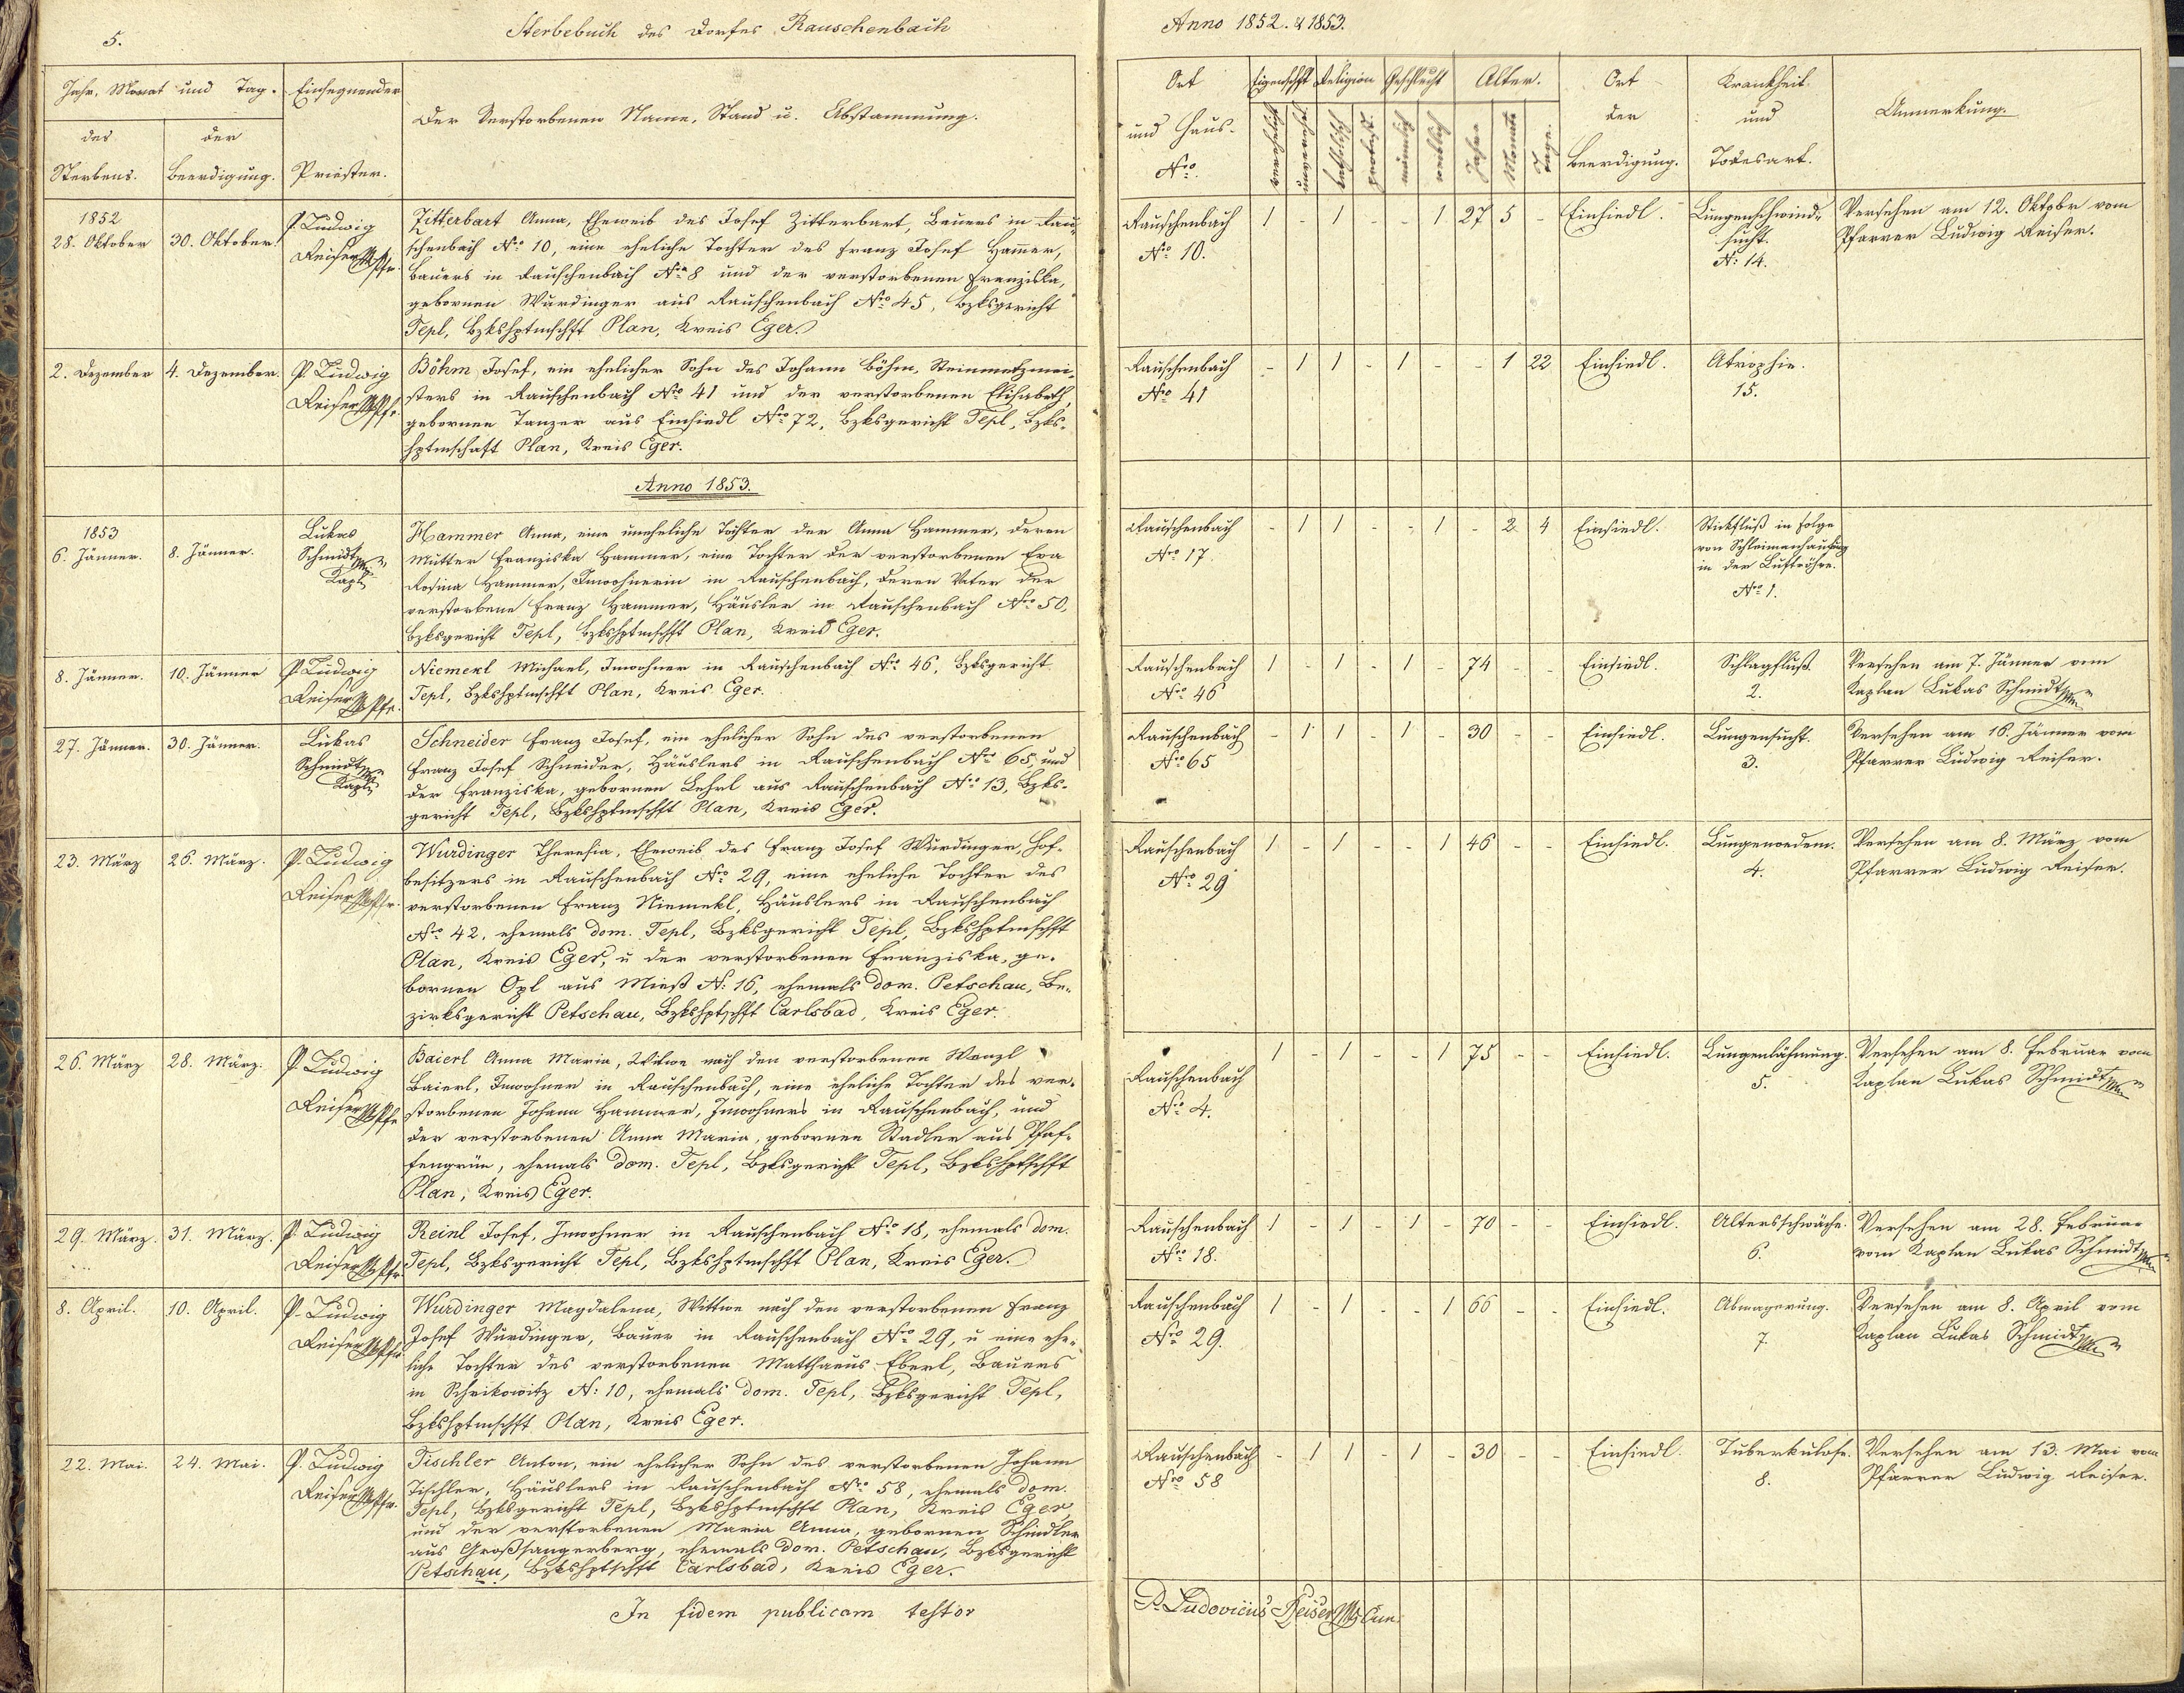 5.
Sterbebuch des Dorfes Rauschenbach
Anno 1852. & 1853.
Jahr, Monat und Tag.
des Sterbens.
der Beerdigung.
Einsegnender Priester.
Der Verstorbenen Name, Stand u. Abstammung.
Ort und Haus-Nro.
Eigenschft
verehelicht
unverehel.
Religion
katholisch
protest.
Geschlecht
männlich
weiblich
Alter.
Jahre
Monate
Tage.
Ort der Beerdigung.
Krankheit und Todesart.
Anmerkung.
1852
28. Oktober
30. Oktober.
P. Ludwig
Reiser Pfr.
Zitterbart Anna, Eheweib des Josef Zitterbart, Bauers in Rau-
schenbach Nro 10, eine eheliche Tochter des Franz Josef Ham̅er,
Bauers in Rauschenbach Nro 8 und der verstorbenen Franziska,
gebornen Wurdinger aus Rauschenbach Nro 45, Bzksgericht
Tepl, Bzkshptmschft Plan, Kreis Eger.
Rauschenbach
Nro 10.
1 - 1 - - 1 27 5 -
Einsiedl.
Lungenschwind-
sucht.
N: 14.
Versehen am 12. Oktobr vom
Pfarrer Ludwig Reiser.
2. Dezember
4. Dezember.
P. Ludwig
Reiser Pfr.
Böhm Josef, ein ehelicher Sohn des Johann Böhm, Steinmetzmei-
sters in Rauschenbach Nro 41 und der verstorbenen Elisabeth,
gebornen Tanzer aus Einsiedl Nro 72, Bzksgericht Tepl, Bzks-
hptmschaft Plan, Kreis Eger.
Rauschenbach
Nro 41
- 1 1 - 1 - - 1 22
Einsiedl.
Atrophie.
15.
Anno 1853.
1853
6. Jänner.
8. Jänner.
Lukas
Schmidt
Kapl.
Hammer Anna, eine uneheliche Tochter der Anna Hammer, deren
Mutter Franziska Hammer, eine Tochter der verstorbenen Eva
Rosina Hammer, Inwohnerin in Rauschenbach, deren Vater der
verstorbene Franz Hammer, Häusler in Rauschenbach Nro 50,
Bzksgericht Tepl, Bzkshptmschft Plan, Kreis Eger.
Rauschenbach
Nro 17.
- 1 1 - - 1 - 2 4
Einsiedl.
Stickfluß in Folge
von Schleimanhäufung
in der Luftröhre.
Nro 1.
8. Jänner.
10. Jänner
P. Ludwig
Reiser Pfr.
Niemerl Michael, Inwohner in Rauschenbach Nro 46, Bzksgericht
Tepl, Bzkshptmschft Plan, Kreis Eger.
Rauschenbach
Nro 46
1 - 1 - 1 - 74 - -
Einsiedl.
Schlagfluß.
2.
Versehen am 7. Jänner vom
Kaplan Lukas Schmidt
27. Jänner.
30. Jänner.
Lukas
Schmidt
Kapl.
Schneider Franz Josef, ein ehelicher Sohn des verstorbenen
Franz Josef Schneider, Häuslers in Rauschenbach Nro 65, und
der Franziska, gebornen Lehrl aus Rauschenbach Nro 13, Bzks-
gericht Tepl, Bzkshptmschft Plan, Kreis Eger.
Rauschenbach
Nro 65
- 1 1 - 1 - 30 - -
Einsiedl.
Lungensucht.
3.
Versehen am 16. Jänner vom
Pfarrer Ludwig Reiser.
23. März
26. März.
P. Ludwig
Reiser Pfr.
Wurdinger Theresia, Eheweib des Franz Josef Wurdinger, Hof-
besitzers in Rauschenbach Nro 29, eine eheliche Tochter des
verstorbenen Franz Niemekl, Häuslers in Rauschenbach
Nro 42, ehemals dom. Tepl, Bzksgericht Tepl, Bzkshptmschft
Plan, Kreis Eger, u der verstorbenen Franziska, ge-
bornen Opl aus Mieß N: 16, ehemals dom. Petschau, Be-
zirksgericht Petschau, Bzkshptschft Carlsbad, Kreis Eger.
Rauschenbach
Nro 29
1 - 1 - - 1 46 - -
Einsiedl.
Lungenoedem.
4.
Versehen am 8. März vom
Pfarrer Ludwig Reiser.
26. März
28. März.
P. Ludwig
Reiser Pfr
Baierl Anna Maria, Witwe nach den verstorbenen Wenzl
Baierl, Inwohner in Rauschenbach, eine eheliche Tochter des ver-
storbenen Johann Hammer, Inwohners in Rauschenbach, und
der verstorbenen Anna Maria, gebornen Stadler aus Pfaf-
fengrün, ehemals dom. Tepl, Bzksgericht Tepl, Bzkshptschft
Plan, Kreis Eger.
Rauschenbach
Nro 4.
1 - 1 - - 1 75 - -
Einsiedl.
Lungenlähmung.
5.
Versehen am 8. Februar vom
Kaplan Lukas Schmidt
29. März.
31. März.
P. Ludwig
Reiser Pfr
Reinl Josef, Inwohner in Rauschenbach Nro 18, ehemals dom.
Tepl, Bzksgericht Tepl, Bzkshptmschft Plan, Kreis Eger.
Rauschenbach
Nro 18.
1 - 1 - 1 - 70 - -
Einsiedl.
Altersschwäche.
6.
Versehen am 28. Februar
vom Kaplan Lukas Schmidt
8. April.
10. April.
P. Ludwig
Reiser Pfr
Wurdinger Magdalena, Wittwe nach den verstorbenen Franz
Josef Wurdinger, Bauer in Rauschenbach Nro 29, u eine ehe-
liche Tochter des verstorbenen Matthaeus Eberl, Bauers
in Schrikowitz N: 10, ehemals dom. Tepl, Bzksgericht Tepl,
Bzkshptmschft Plan, Kreis Eger.
Rauschenbach
Nro 29.
1 - 1 - - 1 66 - -
Einsiedl.
Abmagerung.
7.
Versehen am 8. April vom
Kaplan Lukas Schmidt
22. Mai.
24. Mai.
P. Ludwig
Reiser Pfr.
Tischler Anton, ein ehelicher Sohn des verstorbenen Johann
Tischler, Häuslers in Rauschenbach Nro 58, ehemals dom.
Tepl, Bzksgericht Tepl, Bzkshptmschft Plan, Kreis Eger,
und der verstorbenen Maria Anna, gebornen Schindler
aus Großsangerberg, ehemals dom. Petschau, Bzksgericht
Petschau, Bzkshptschft Carlsbad, Kreis Eger.
Rauschenbach
Nro 58
- 1 1 - 1 - 30 - -
Einsiedl.
Tuberkulose.
8.
Versehen am 13. Mai vom
Pfarrer Ludwig Reiser.
In fidem publicam testor
P. Ludovicus Reiser